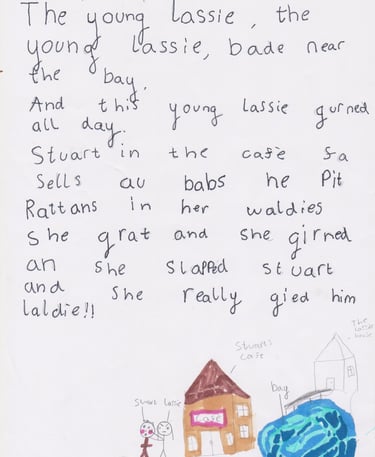 The young lassie, the
young lassie, bade near
the bay.
And this young lassie gurned
all day.
Stuart in the cafè fa
sells au babs he Pit
Rattans in her waldies
she grat and she girned
an she slapped stuart
and she really gied him
laldie!!
The
lassie
house
Stuart's
cafe
bay
Stuart lassie
cafe